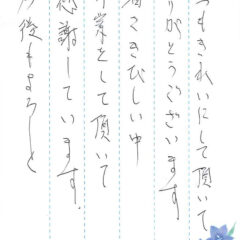 つもきれいにして頂いて
りがとうございます
さきびしい中
業をして頂いて
感謝しています.
後もよろしく